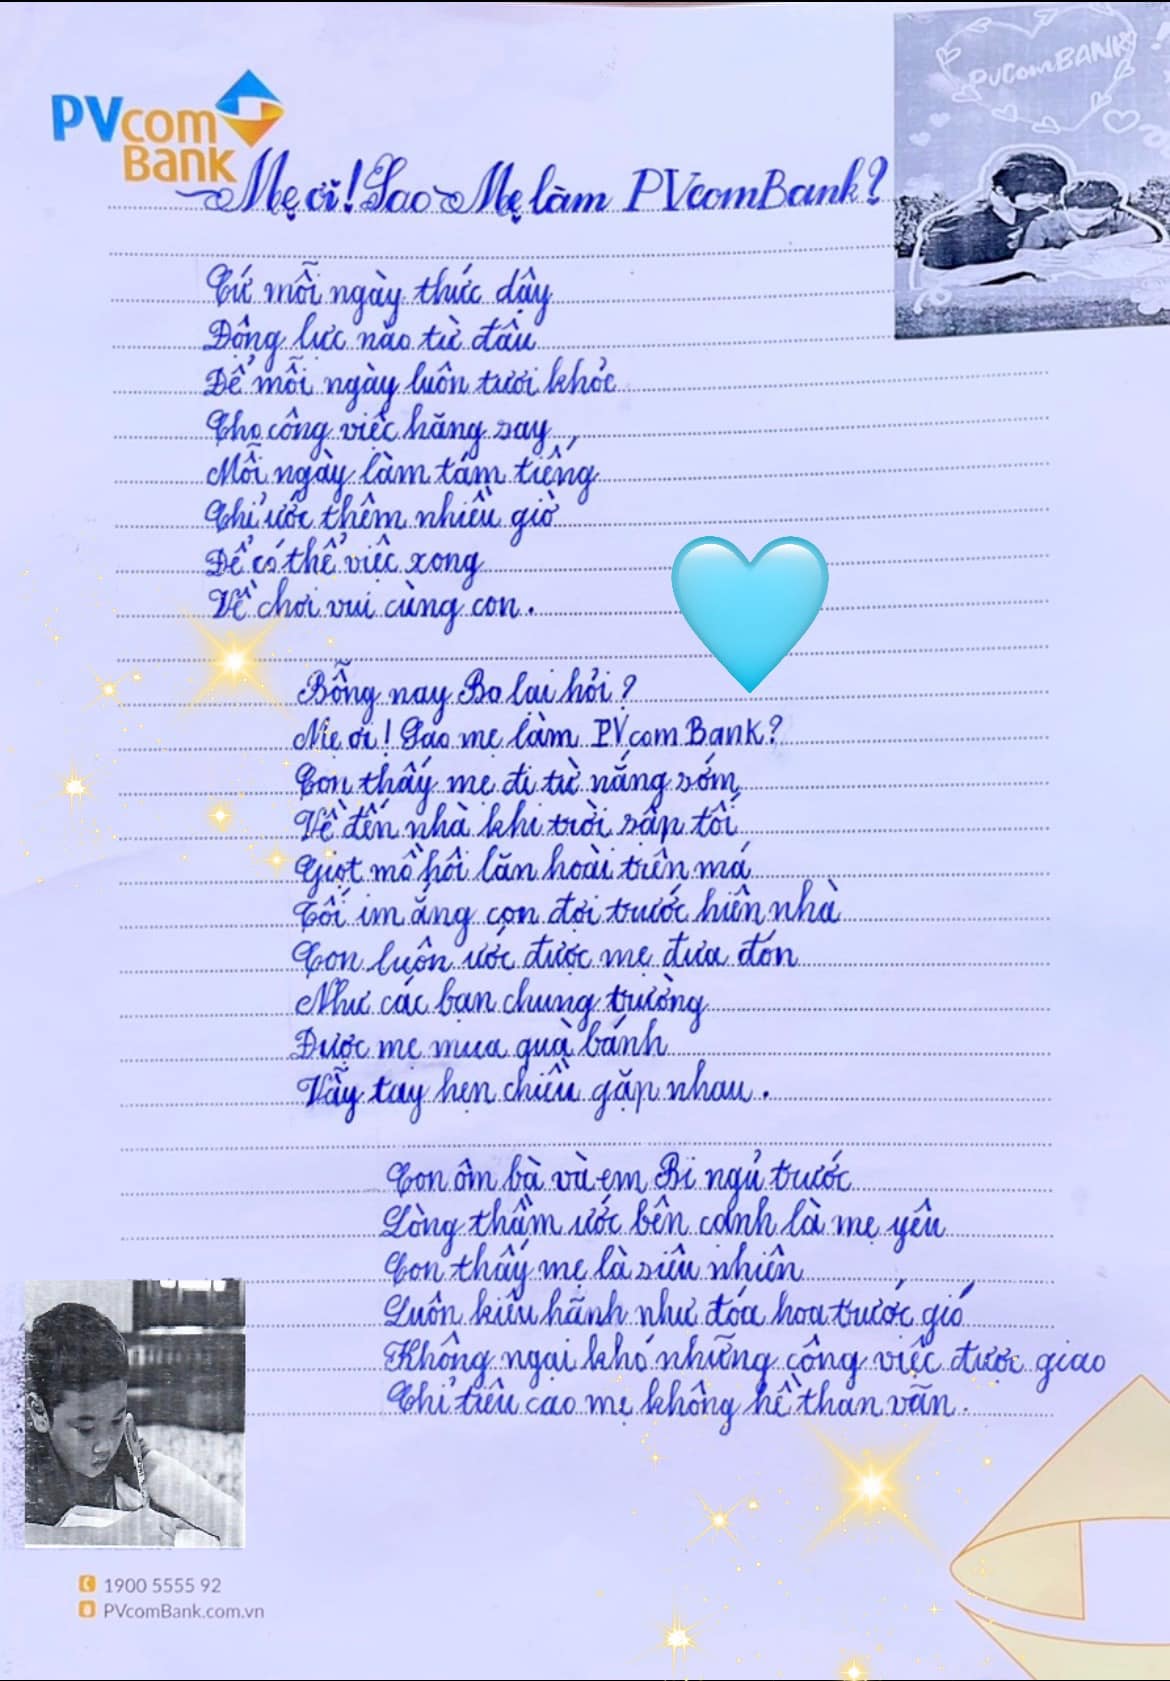 PVcom
Bank
PVComBANK
Mẹ ơi! Sao Mẹ làm PVcomBank?
Cứ mỗi ngày thức dậy
Động lực nào từ đâu
Để mỗi ngày luôn tươi khỏe
Cho công việc hăng say
Mỗi ngày làm tám tiếng
Chỉ ước thêm nhiều giờ
Để có thể việc xong
Về chơi vui cùng con.
Bỗng nay Bo lại hỏi?
Mẹ ơi! Sao mẹ làm PVcomBank?
Con thấy mẹ đi từ nắng sớm
Về đến nhà khi trời sập tối
Giọt mồ hôi lăn hoài trên má
Tối im ắng con đợi trước hiên nhà
Con luôn ước được mẹ đưa đón
Như các bạn chung trường
Được mẹ mua quà bánh
Vẫy tay hẹn chiều gặp nhau.
Con ôm bà và em Bi ngủ trước
Lòng thầm ước bên cạnh là mẹ yêu
Con thấy mẹ là siêu nhiên
Luôn kiêu hãnh như đóa hoa trước gió
Không ngại khó những công việc được giao
Chỉ tiêu cao mẹ không hề than vãn.
1900 5555 92
PVcomBank.com.vn